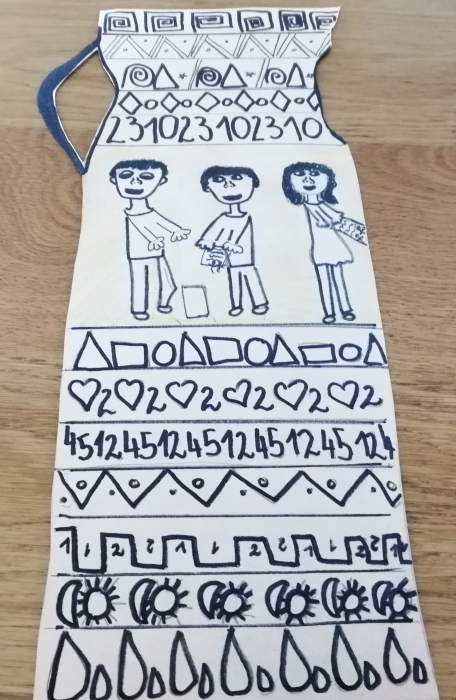 231023102310
2 2 2 2 2 2
451245124512451245124
1 1 2 2 1 1 2 2 1 1 2 2 1